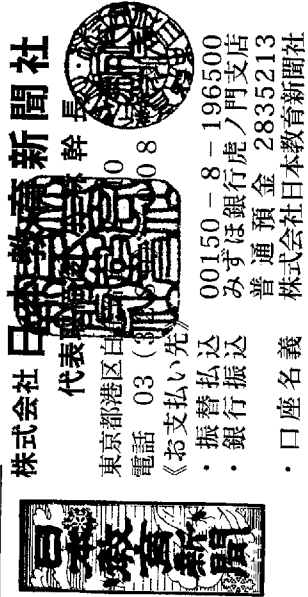 日本教育新聞
株式会社 日本教育新聞社
代表取締役 幹長
東京都港区白 0
電話 03 (3 08
《お支払い先》
・振替払込 00150-8-196500
・銀行振込 みずほ銀行虎ノ門支店
普通預金 2835213
・口座名義 株式会社日本教育新聞社